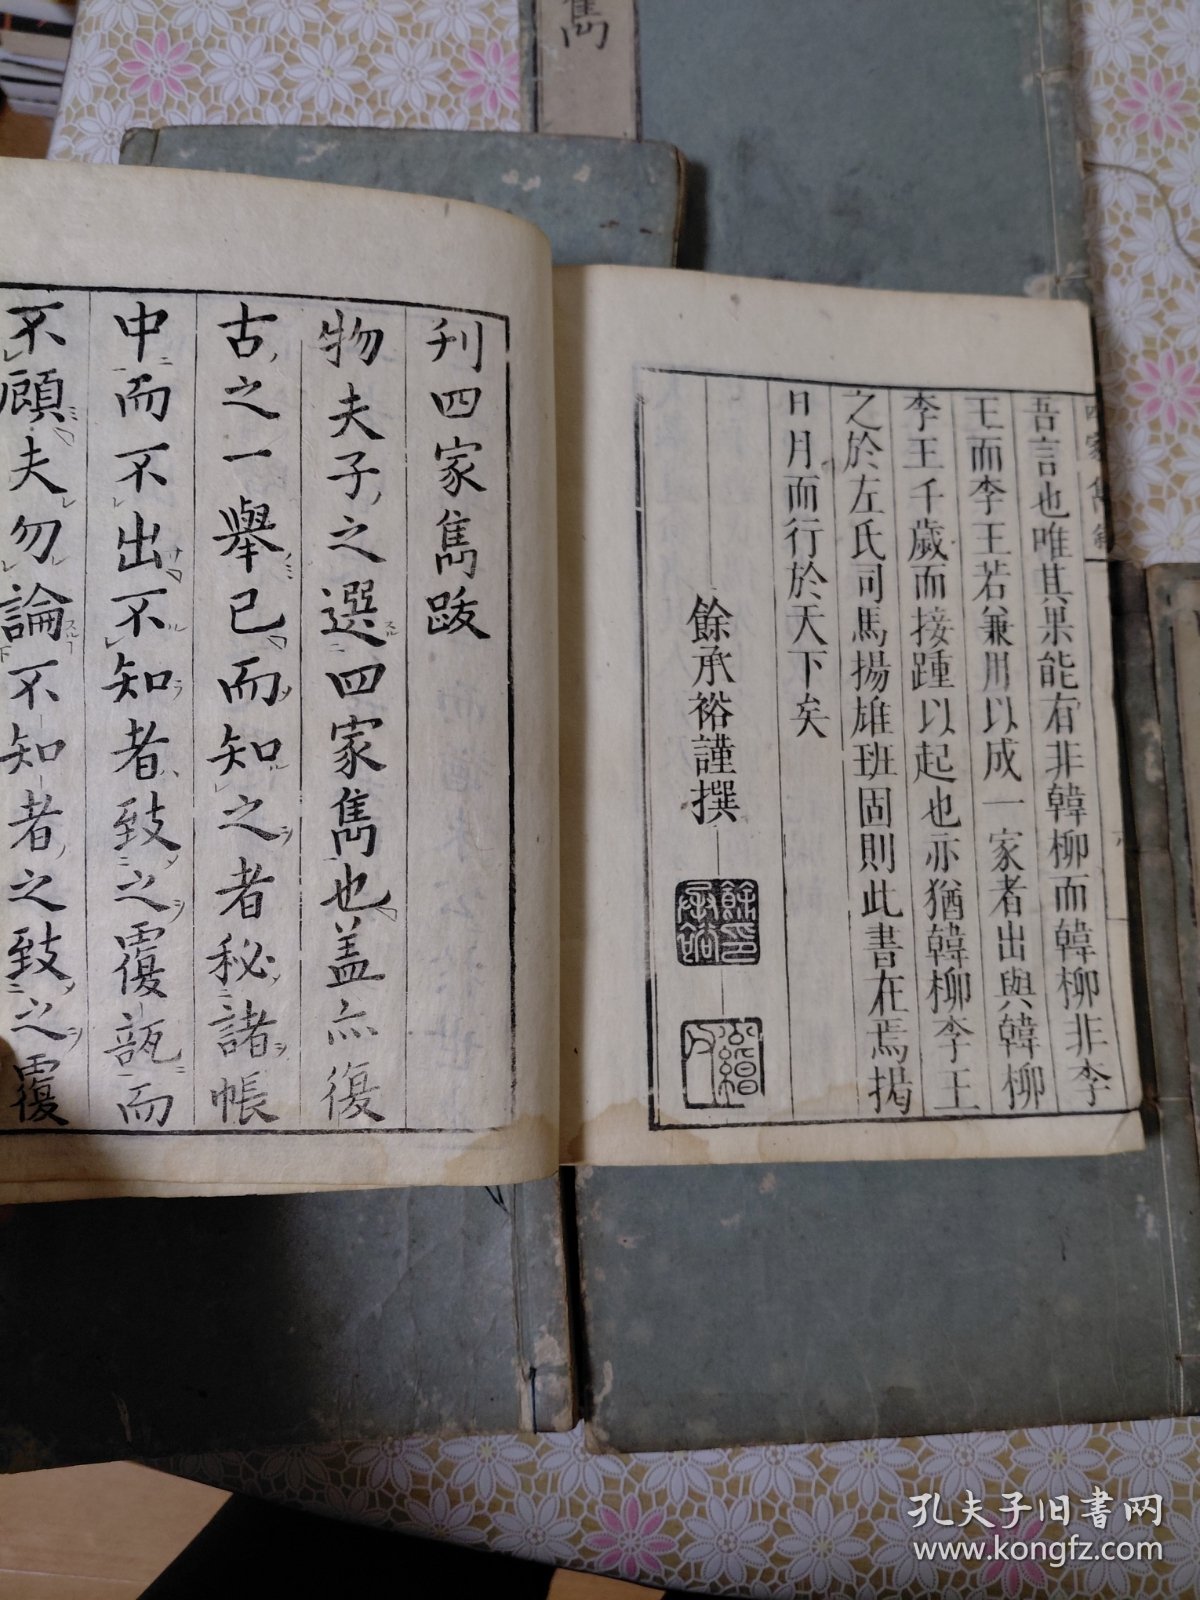 吾言也唯其果能有非韓柳而韓柳非李
王而李王若兼用以成一家者出與韓柳
李王千歲而接踵以起也亦猶韓柳李王
之於左氏司馬揚雄班固則此書在焉揭
日月而行於天下矣
餘承裕謹撰
刊四家雋跋
物夫子之選四家雋也蓋亦復
古之一舉已而知之者秘諸帳
中而不出不知者致之覆瓿而
不顧夫勿論不知者之致之覆
雋
孔夫子旧书网
www.kongfz.com